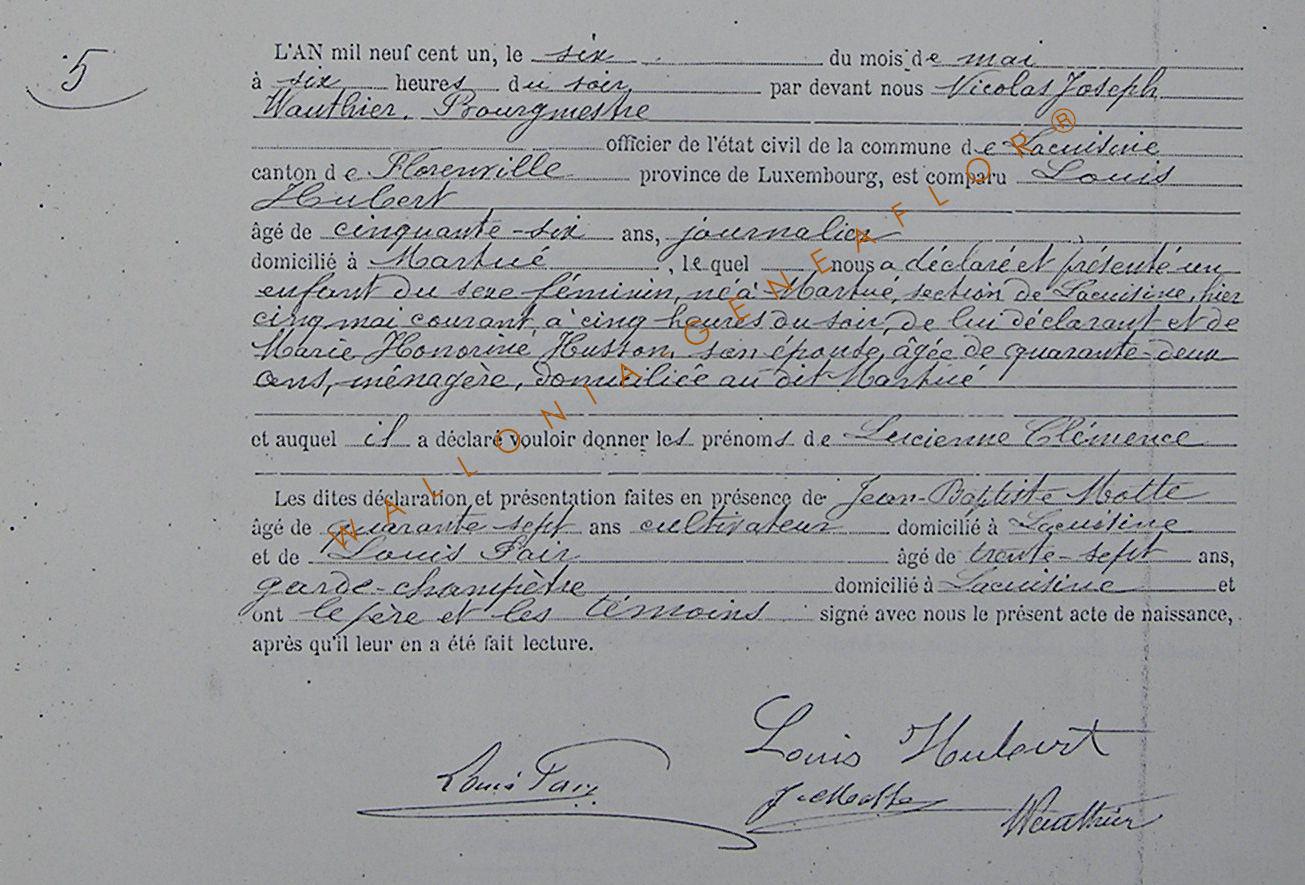 5
L'AN mil neuf cent un, le six du mois de mai
à six heures du soir par devant nous Nicolas Joseph
Wauthier, Bourgmestre
officier de l'état civil de la commune de Lacuisine
canton de Florenville province de Luxembourg, est comparu Louis
Hubert
âgé de cinquante-six ans, journalier
domicilié à Martué, lequel nous a déclaré et présenté un
enfant du sexe féminin, né à Martué, section de Lacuisine, hier
cinq mai courant, à cinq heures du soir, de lui déclarant et de
Marie Honorine Husson, son épouse, âgée de quarante-deux
ans, ménagère, domiciliée au dit Martué
et auquel il a déclaré vouloir donner les prénoms de Lucienne Clémence
Les dites déclaration et présentation faites en présence de Jean-Baptiste Motte
âgé de quarante sept ans cultivateur domicilié à Lacuisine
et de Louis Pair âgé de trente-sept ans,
garde-champêtre domicilié à Lacuisine et
ont le père et les témoins signé avec nous le présent acte de naissance,
après qu'il leur en a été fait lecture.
Louis Hubert
Louis Pair
J. Motte
Wauthier
WALLONIA GENEAFLOR®